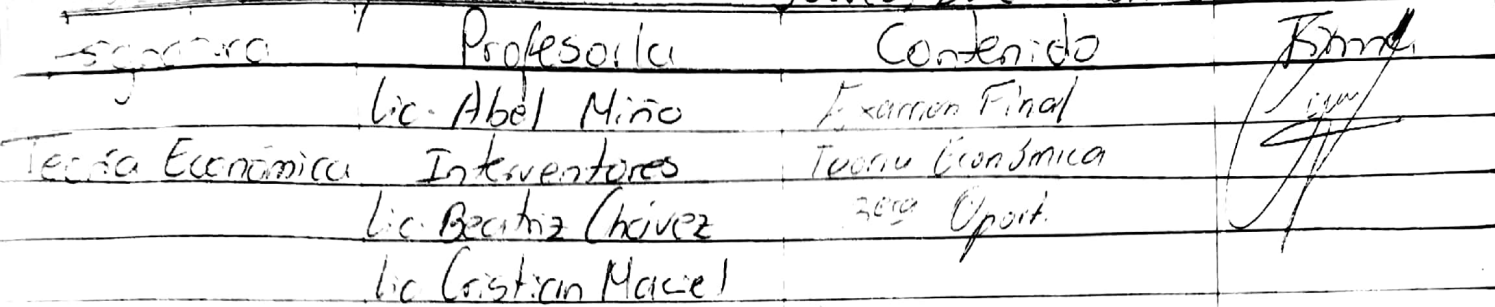 Profesor/a Contenido Firma
Lic. Abel Miño Examen Final
Teoría Económica Interventores Teoría Económica
Lic. Beatriz Chávez 3era Oport.
Lic Cristian Maciel